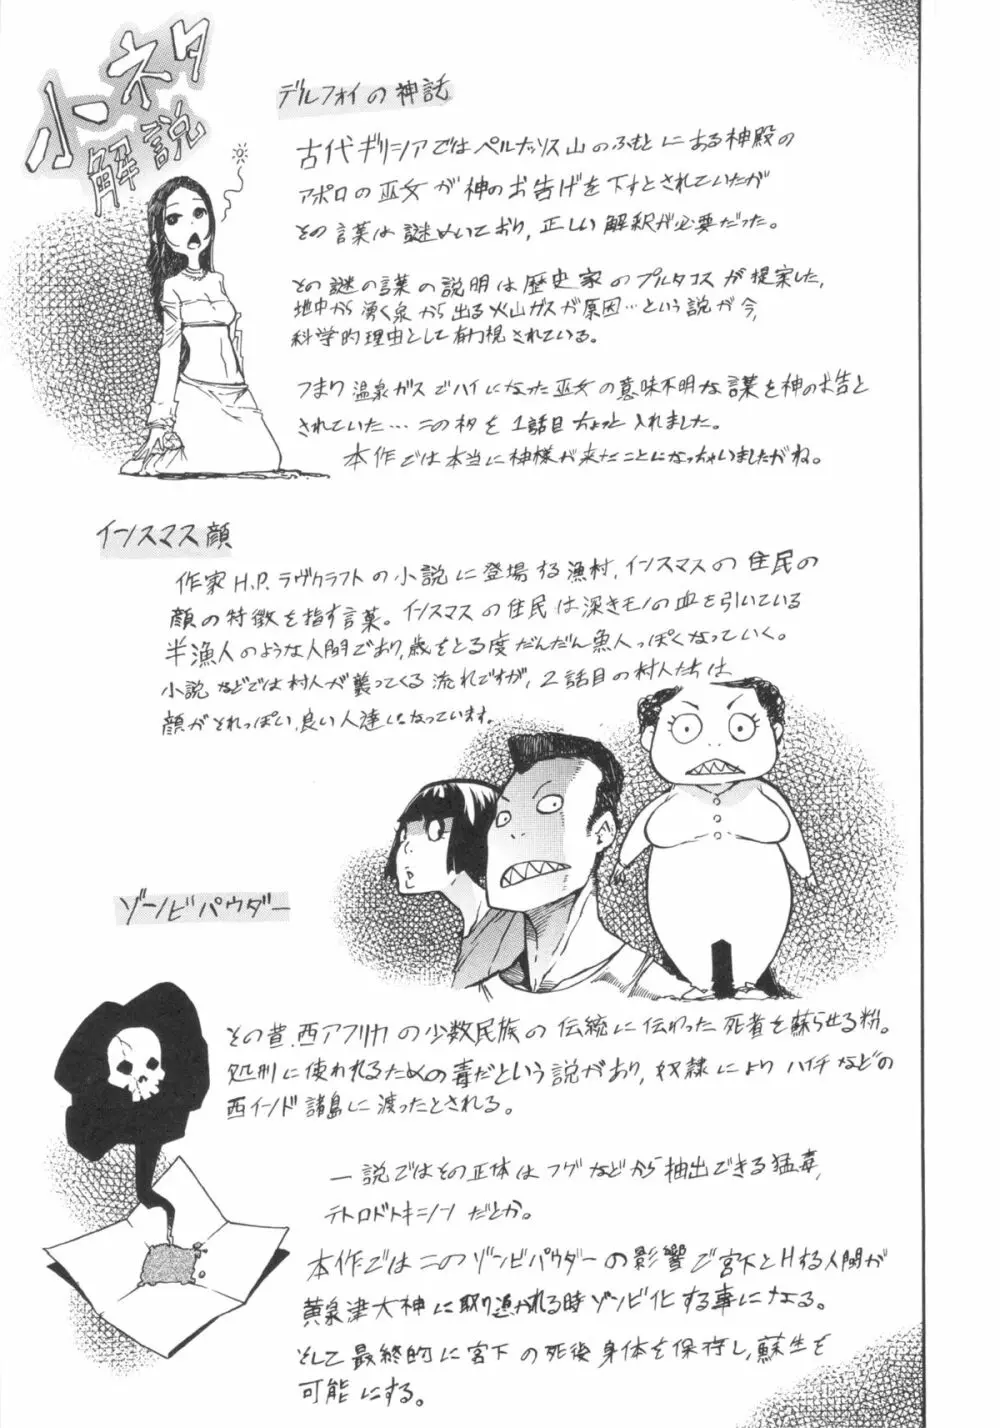 小ネタ
解説
デルフォイの神話
古代ギリシアではペルナッソス山のふもとにある神殿の
アポロの巫女が神のお告げを下すとされていたが
その言葉は謎めいており、正しい解釈が必要だった。
その謎の言葉の説明は歴史家のプルタコスが提案した、
地中から湧く泉から出る火山ガスが原因…という説が今、
科学的理由として有力視されている。
つまり温泉ガスでハイになった巫女の意味不明な言葉を神のお告と
されていた…このネタを1話目ちょっと入れました。
本作では本当に神様が来たことになっちゃいましたがね。
インスマス顔
作家H.P.ラヴクラフトの小説に登場する漁村、インスマスの住民の
顔の特徴を指す言葉。インスマスの住民は深きモノの血を引いている
半漁人のような人間であり、歳をとる度だんだん魚人っぽくなっていく。
小説などでは村人が襲ってくる流れですが、2話目の村人たちは
顔がそれっぽい、良い人達になっています。
ゾンビパウダー
その昔、西アフリカの少数民族の伝統に伝わった死者を蘇らせる粉。
処刑に使われるための毒だという説があり、奴隷によりハイチなどの
西インド諸島に渡ったとされる。
一説ではその正体はフグなどから抽出できる猛毒、
テトロドトキシンだとか。
本作ではこのゾンビパウダーの影響で宮下とHする人間が
黄泉津大神に取り憑かれる時ゾンビ化する事になる。
そして最終的に宮下の死後身体を保存し、蘇生を
可能にする。